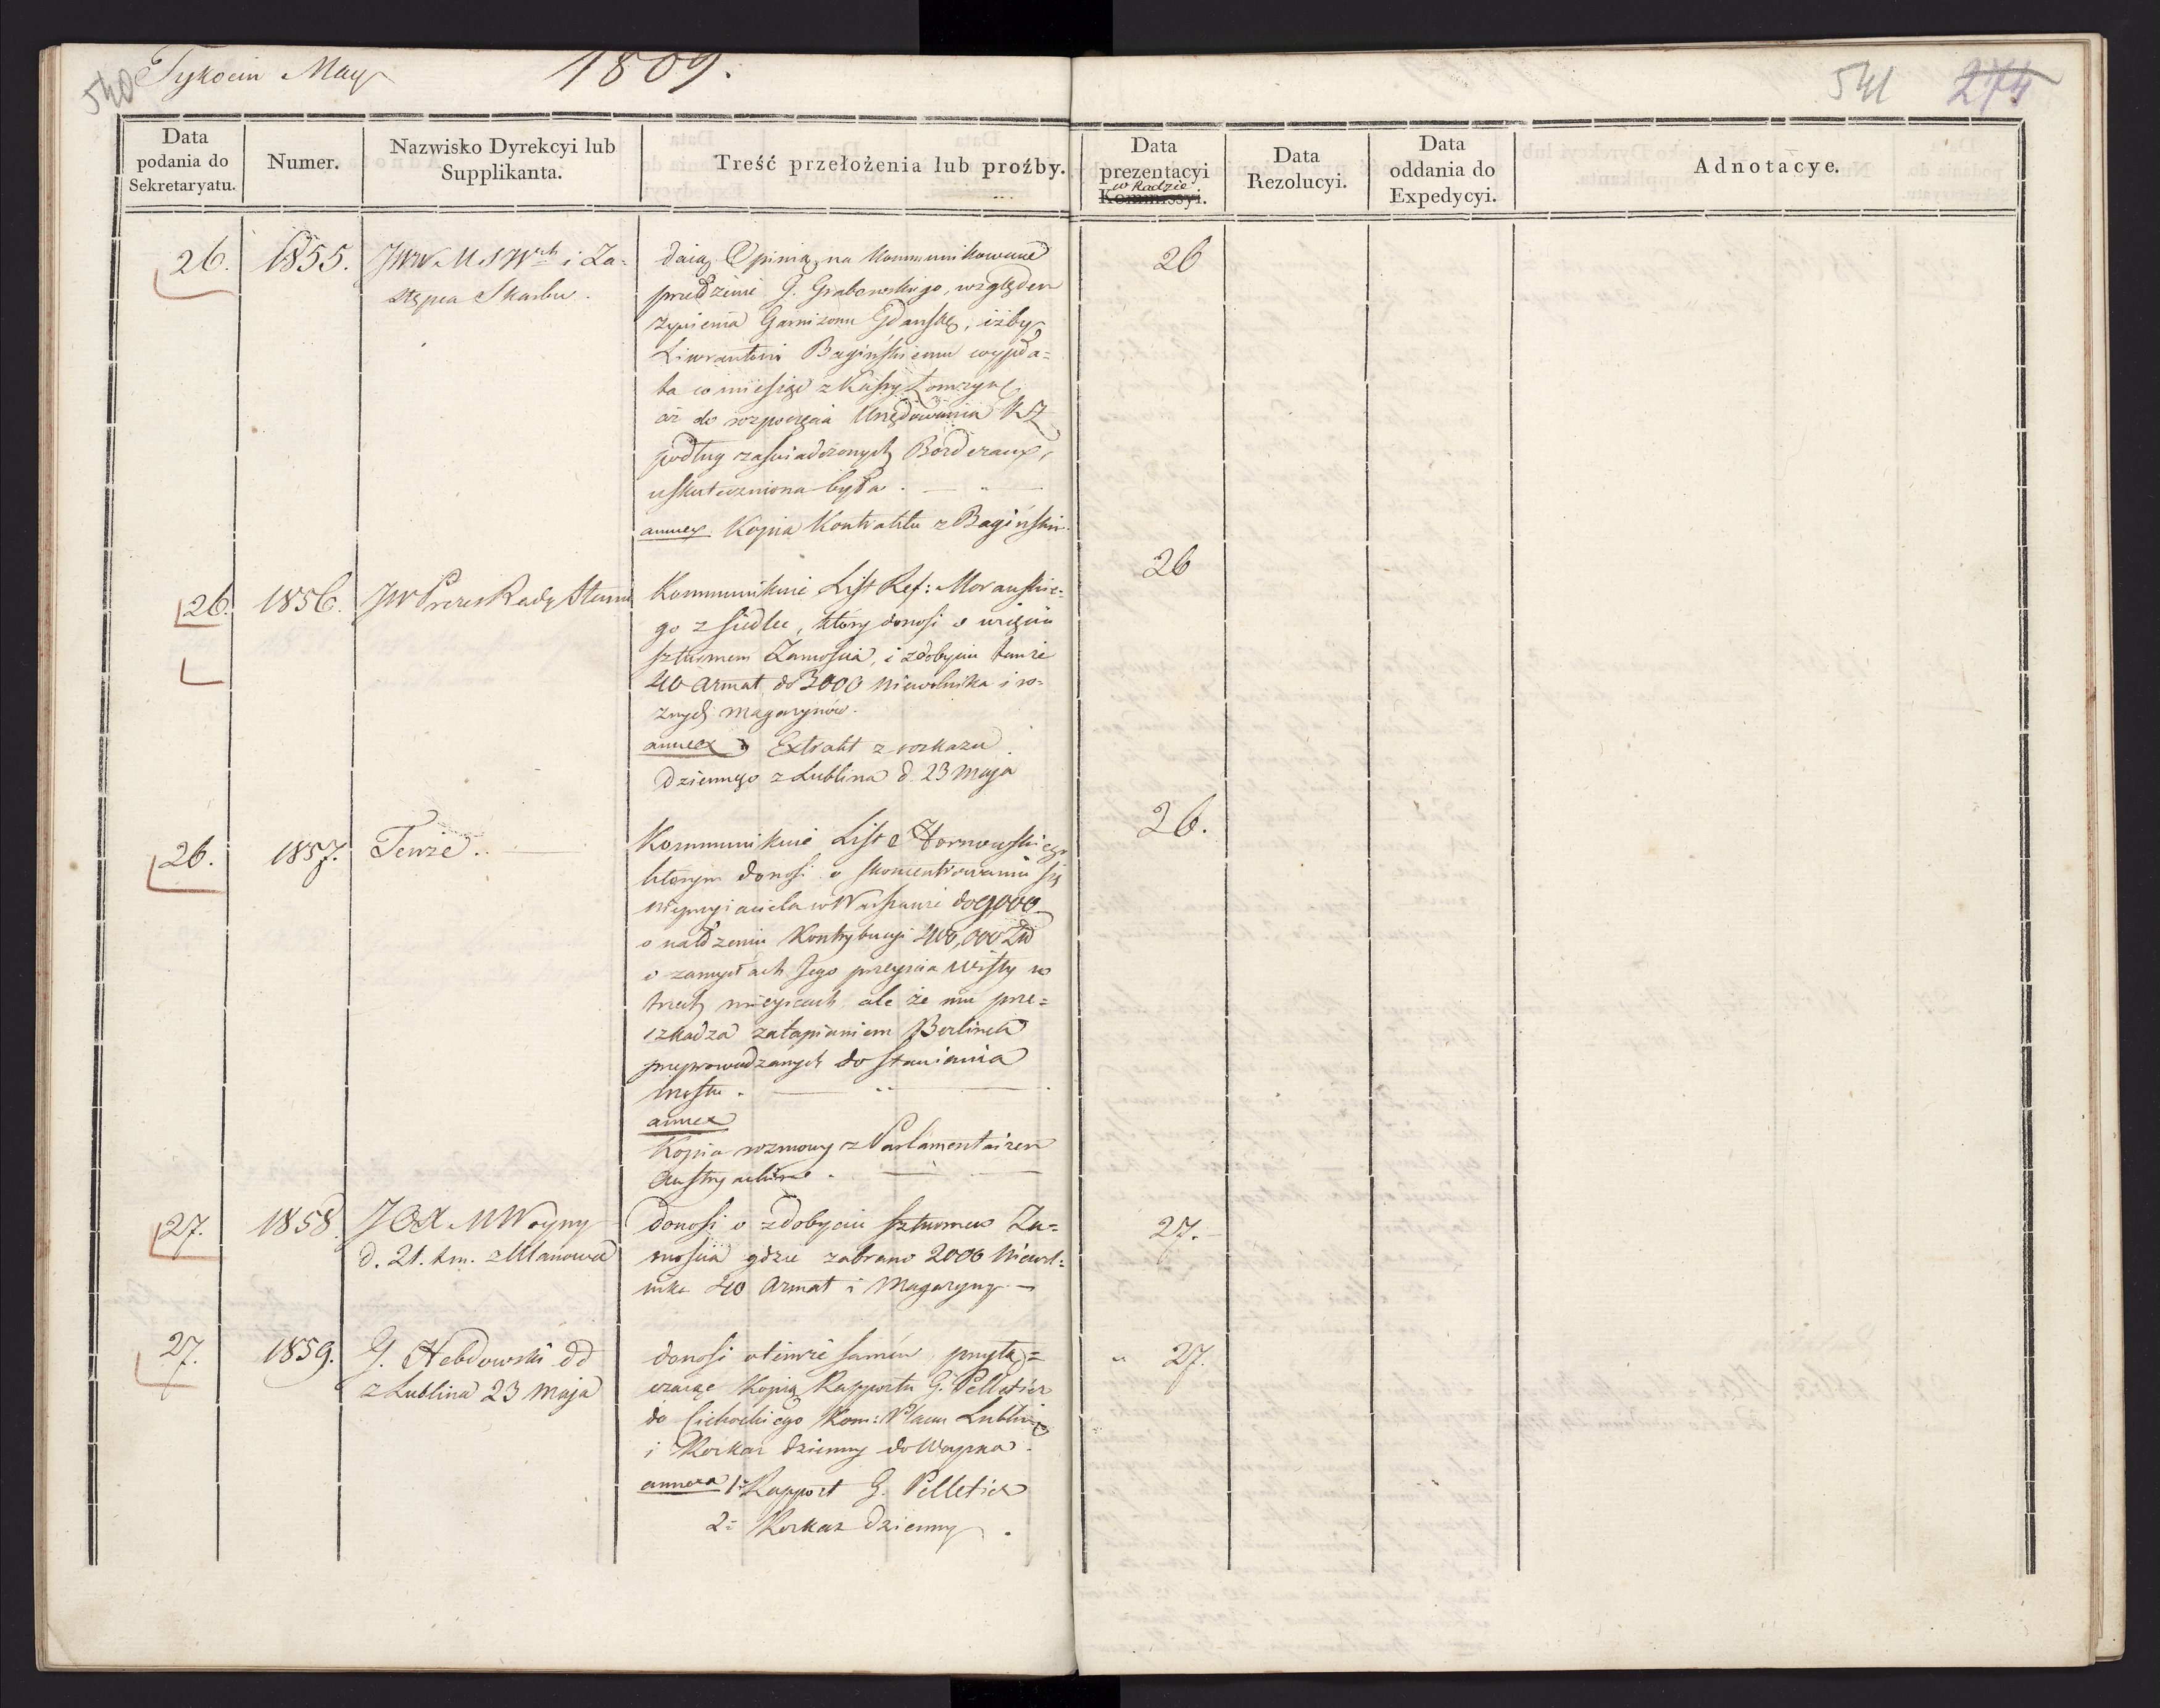 540 Tykocin May 1809.
541 274
Data podania do Sekretaryatu.
Numer.
Nazwisko Dyrekcyi lub Supplikanta.
Treść przełożenia lub proźby.
Data prezentacyi w Radzie Kommissyi.
Data Rezolucyi.
Data oddania do Expedycyi.
Adnotacye.
26. 1855. JWW M S Wch i Za=
stępca Skarbu.
daią Opinią na kommunikowane
G. Grabowskiego, względem
żywienia Garnizonu Gdańska, iżby
Liwrantowi Bagińskiemu wypła=
ta co miesiąc z Kassy Łomżyń
aż do rozpoczęcia Urzędowania
podług zaświadczonych Borderaux,
uskuteczniona była.
annex Kopia Kontraktu z Bagińskim
26
26. 1856. JW Prezes Rady Stanu
Kommunikuie List Ref: Morawskie=
go z Siedlec, który donosi o wzięciu
szturmem Zamościa, i zdobyciu tamże
40 armat, do 3000 niewolnika i ro=
żnych magazynów.
annex Extrakt z rozkazu
dziennego z Lublina d. 23 Maja
26
26. 1857. Tenże.
Kommunikuie List Hornowskiego
którym donosi o skoncentrowaniu się
nieprzyiaciela w Warszawie do 9,000
o nałożeniu Kontrybucyi 400,000
o zamysłach Jego przeyścia Wisły w
trzech mieyscach ale że mu prze=
szkadza zatapianiem Berlinek
przeprowadzanych do stawiania
mostu.
annex
Kopia rozmowy z Parlamentairem
Austryackim.
26.
27. 1858. JOX M Woyny
d. 21. t.m. z Ulanowa
donosi o zdobyciu szturmem Za=
mościa gdzie zabrano 2000 Niewol=
nika 40 Armat i Magazyny
27.
27. 1859. G. Hebdowski dd
z Lublina 23 Maja
donosi o temże samém, przyłą=
czaiąc Kopią Rapportu G. Pelletier
do Cichockiego Kom: Placu Lublina
i Rozkaz dzienny do Woyska.
annexa 1. Rapport G. Pelletier
2. Rozkaz dzienny.
27.